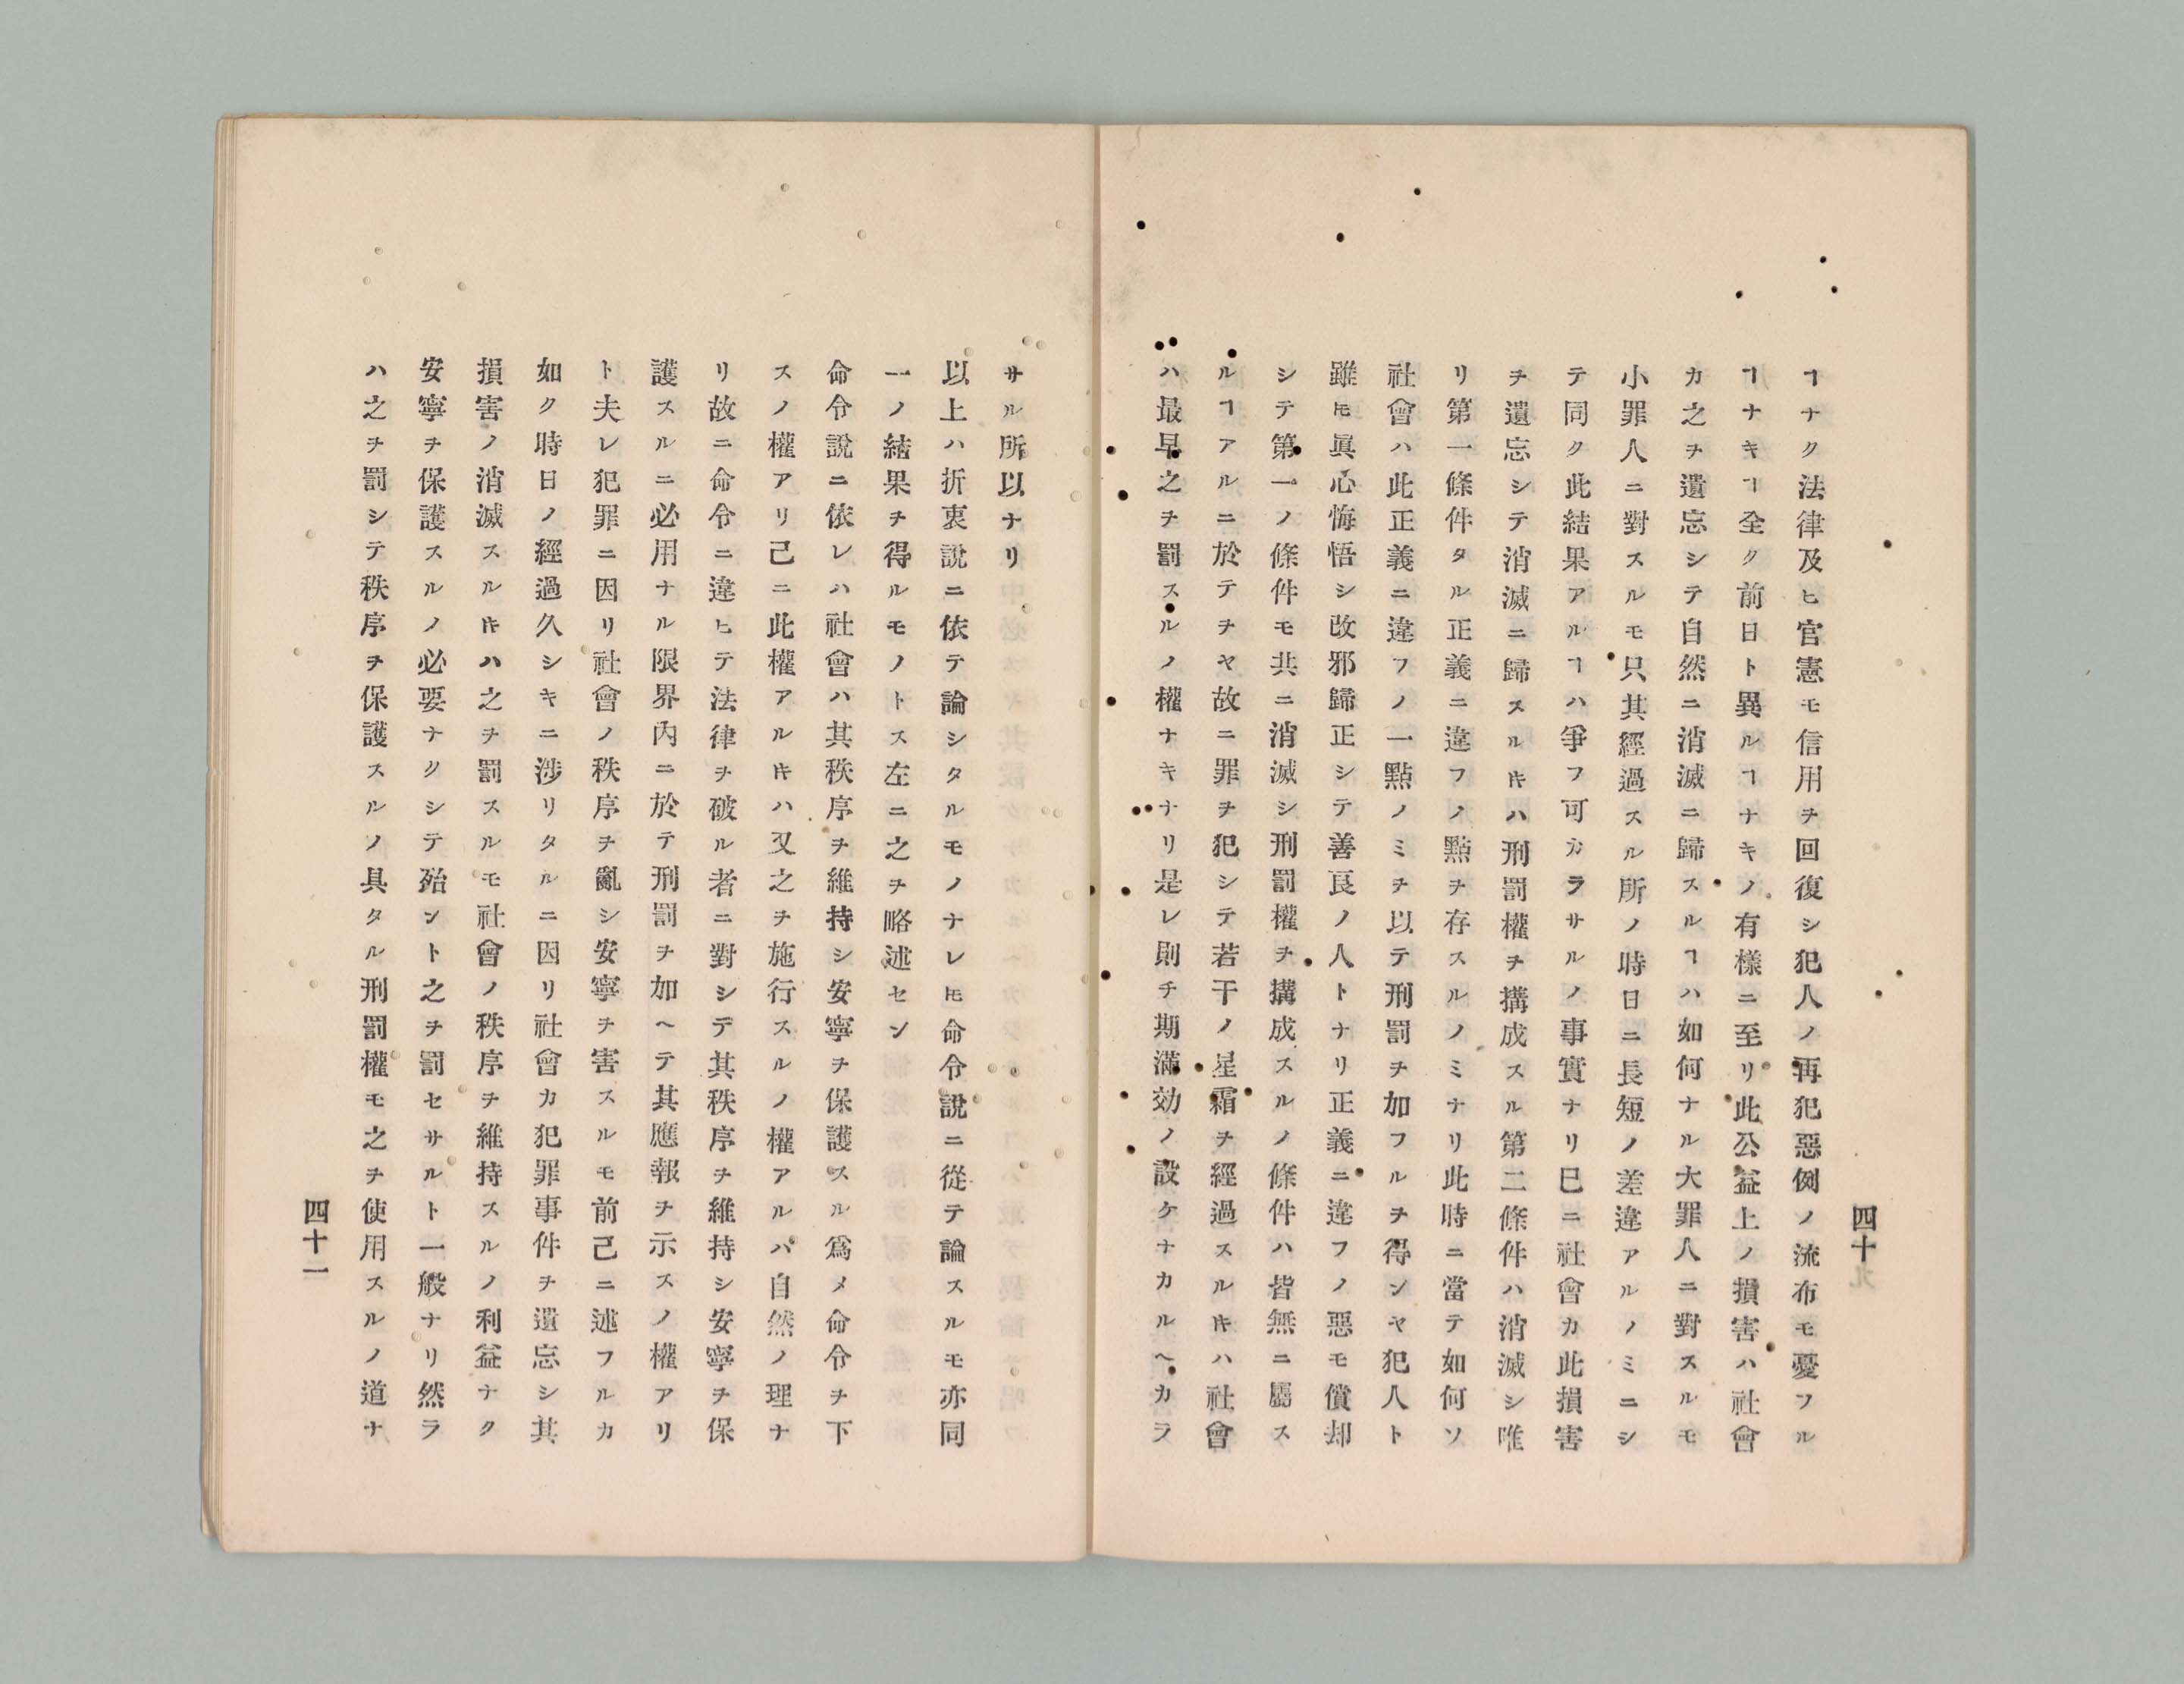 四十
ヿナク法律及ヒ官憲モ信用ヲ回復シ犯人ノ再犯惡例ノ流布モ憂フル
ヿナキヿ全ク前日ト異ルヿナキノ有樣ニ至リ此公益上ノ損害ハ社會
カ之ヲ遺忘シテ自然ニ消滅ニ歸スルヿハ如何ナル大罪人ニ對スルモ
小罪人ニ對スルモ只其經過スル所ノ時日ニ長短ノ差違アルノミニシ
テ同ク此結果アルヿハ爭フ可カラサルノ事實ナリ已ニ社會カ此損害
ヲ遺忘シテ消滅ニ歸スルキハ刑罰權ヲ搆成スル第二條件ハ消滅シ唯
リ第一條件タル正義ニ違フノ點ヲ存スルノミナリ此時ニ當テ如何ソ
社會ハ此正義ニ違フノ一點ノミヲ以テ刑罰ヲ加フルヲ得ンヤ犯人ト
雖𪜈眞心悔悟シ改邪歸正シテ善良ノ人トナリ正義ニ違フノ惡モ償却
シテ第一ノ條件モ共ニ消滅シ刑罰權ヲ搆成スルノ條件ハ皆無ニ屬ス
ルヿアルニ於テヲヤ故ニ罪ヲ犯シテ若干ノ星霜ヲ經過スルキハ社會
ハ最早之ヲ罰スルノ權ナキナリ是レ則チ期滿効ノ設ケナカルヘカラ
サル所以ナリ
以上ハ折衷說ニ依テ論シタルモノナレ𪜈命令說ニ從テ論スルモ亦同
一ノ結果ヲ得ルモノトス左ニ之ヲ略述セン
命令說ニ依レハ社會ハ其秩序ヲ維持シ安寧ヲ保護スル爲メ命令ヲ下
スノ權アリ己ニ此權アルキハ又之ヲ施行スルノ權アルハ自然ノ理ナ
リ故ニ命令ニ違ヒテ法律ヲ破ル者ニ對シテ其秩序ヲ維持シ安寧ヲ保
護スルニ必用ナル限界內ニ於テ刑罰ヲ加ヘテ其應報ヲ示スノ權アリ
ト夫レ犯罪ニ因リ社會ノ秩序ヲ亂シ安寧ヲ害スルモ前己ニ述フルカ
如ク時日ノ經過久シキニ涉リタルニ因リ社會カ犯罪事件ヲ遺忘シ其
損害ノ消滅スルキハ之ヲ罰スルモ社會ノ秩序ヲ維持スルノ利益ナク
安寧ヲ保護スルノ必要ナクシテ殆ント之ヲ罰セサルト一般ナリ然ラ
ハ之ヲ罰シテ秩序ヲ保護スルノ具タル刑罰權モ之ヲ使用スルノ道ナ
四十一